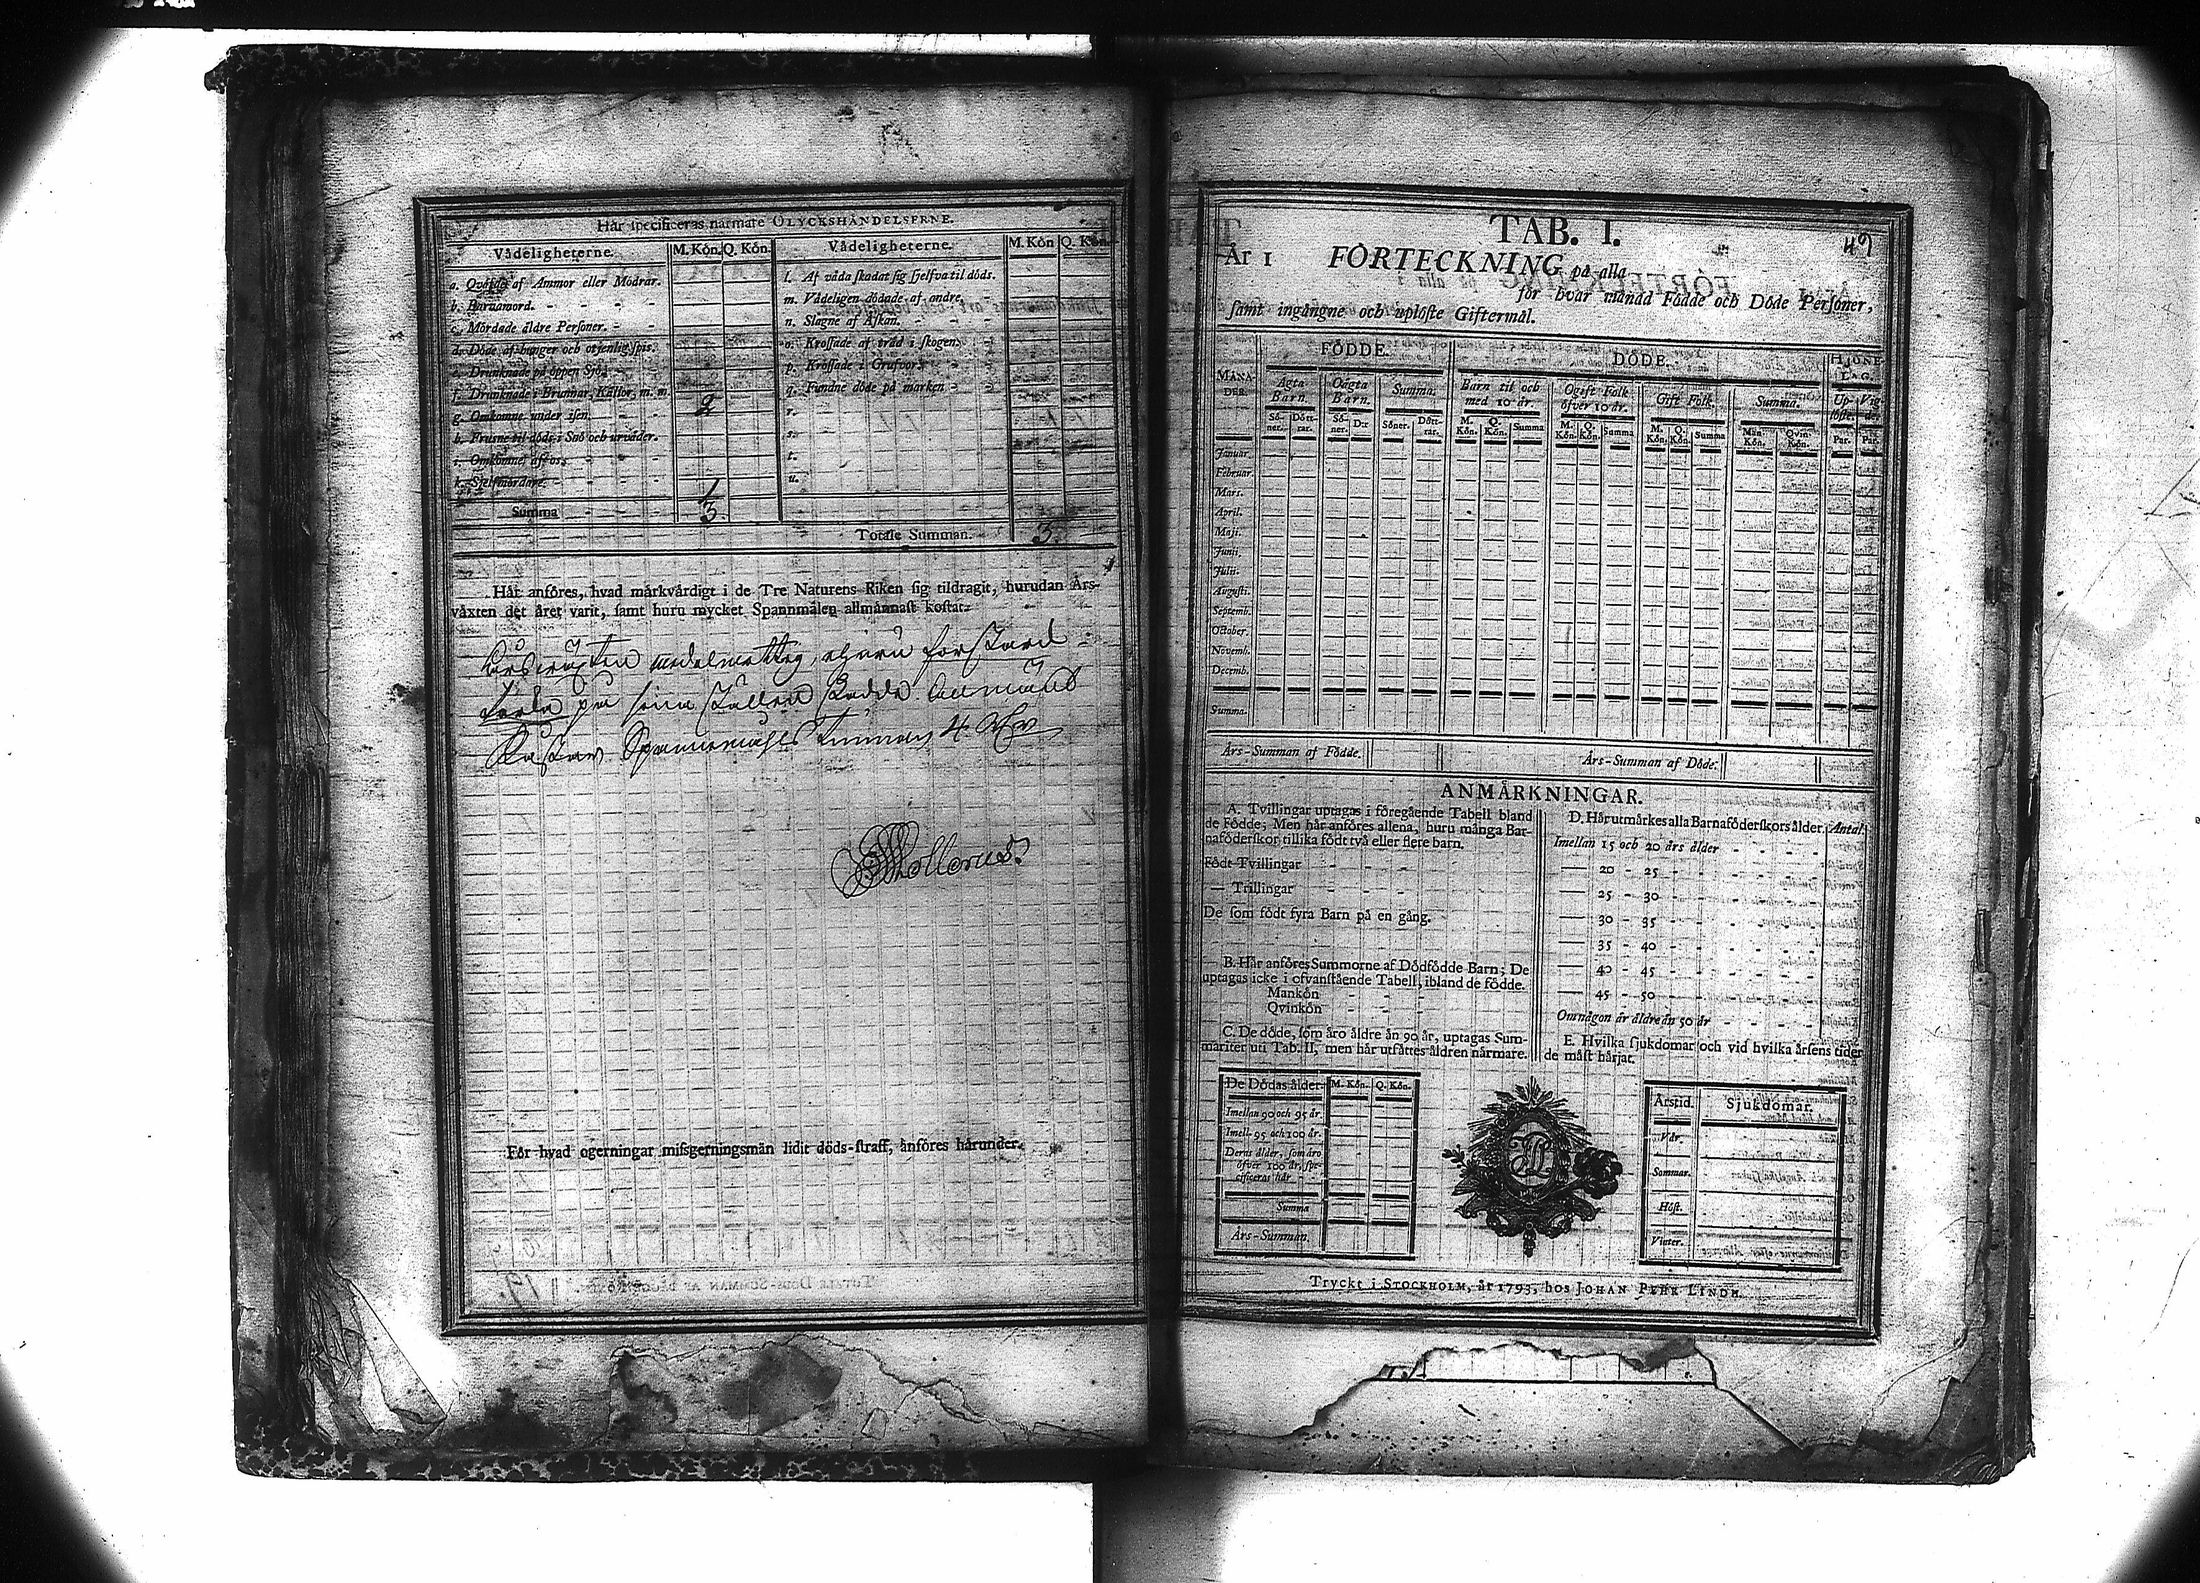 Här specificeras närmare OLYCKSHÄNDELSERNE.
Vådeligheterne. M. Kön. Q. Kön. Vådeligheterne. M. Kön Q. Kön.
a. Qväfde af Ammor eller Modrar. l. Af våda skadat sig sjelfva til döds.
b. Barnamord. m. Vådeligen dödade af andre.
c. Mördade äldre Personer. n. Slagne af Åskan.
d. Döde af hunger och otjenlig spis. o. Krossade af träd i skogen.
e. Drunknade på öppen Sjö. p. Krossade i Grufvor.
f. Drunknade i Brunnar, Källor, m. m. 2 q. Fundne döde på marken
g. Omkomne under isen. r.
h. Frusne til döds i Snö och urväder. s.
i. Omkomne af os. t.
k. Sjelfmördare. 1 u.
Summa 3.
Totale Summan. 3.
Här anföres, hvad märkvärdigt i de Tre Naturens Riken sig tildragit, hurudan Års-
växten det året varit, samt huru mycket Spannmålen allmännast kostat.
Årswäxten medelmåttig, ehuru
på sina ställen
Spannemåhls Tunnan 4
För hvad ogerningar missgerningsmän lidit döds-straff, anföres härunder.
TAB. I. 49
År 1 FÖRTECKNING på alla
för hvar månad Födde och Döde Personer,
samt ingångne och uplöste Giftermål.
MÅNADER. FÖDDE. DÖDE. HJONELAG.
Ägta Barn. Oägta Barn. Summa. Barn til och med 10 år. Ogift Folk öfver 10 år. Gift Folk. Summa. Uplöste. Vigde.
Söner. Döttrar. Söner. D:r Söner. Döttrar. M. Kön. Q. Kön. Summa M. Kön. Q. Kön. Summa M. Kön. Q. Kön. Summa Man-Kön. Qvin-Kön. Par. Par.
Januar.
Februar.
Mars.
April.
Maji.
Junii.
Julii.
Augusti.
Septemb.
October.
Novemb.
Decemb.
Summa.
Års-Summan af Födde. Års-Summan af Döde.
ANMÄRKNINGAR.
A. Tvillingar uptagas i föregående Tabell bland
de Födde; Men här anföres allena, huru många Bar-
naföderskor tillika födt två eller flere barn.
Födt Tvillingar
— Trillingar
De som födt fyra Barn på en gång.
B. Här anföres Summorne af Dödfödde Barn; De
uptagas icke i ofvanstående Tabell, ibland de födde.
Mankön
Qvinkön
C. De döde, som äro äldre än 90 år, uptagas Sum-
mariter uti Tab. II, men här utsättes åldren närmare.
De Dödas ålder M. Kön. Q. Kön.
Imellan 90 och 95 år.
Imell. 95 och 100 år.
Deras ålder, som äro
öfver 100 år, spe-
cificeras här
Summa
Års-Summan.
D. Här utmärkes alla Barnaföderskors ålder. Antal
Imellan 15 och 20 års ålder
— 20 - 25
— 25 - 30
— 30 - 35
— 35 - 40
— 40 - 45
— 45 - 50
Om någon är äldre än 50 år
E. Hvilka sjukdomar och vid hvilka årsens tider
de mäst härjat.
Årstid. Sjukdomar.
Vår.
Sommar.
Höst.
Vinter.
Tryckt i STOCKHOLM, år 1793, hos JOHAN PEHR LINDH.